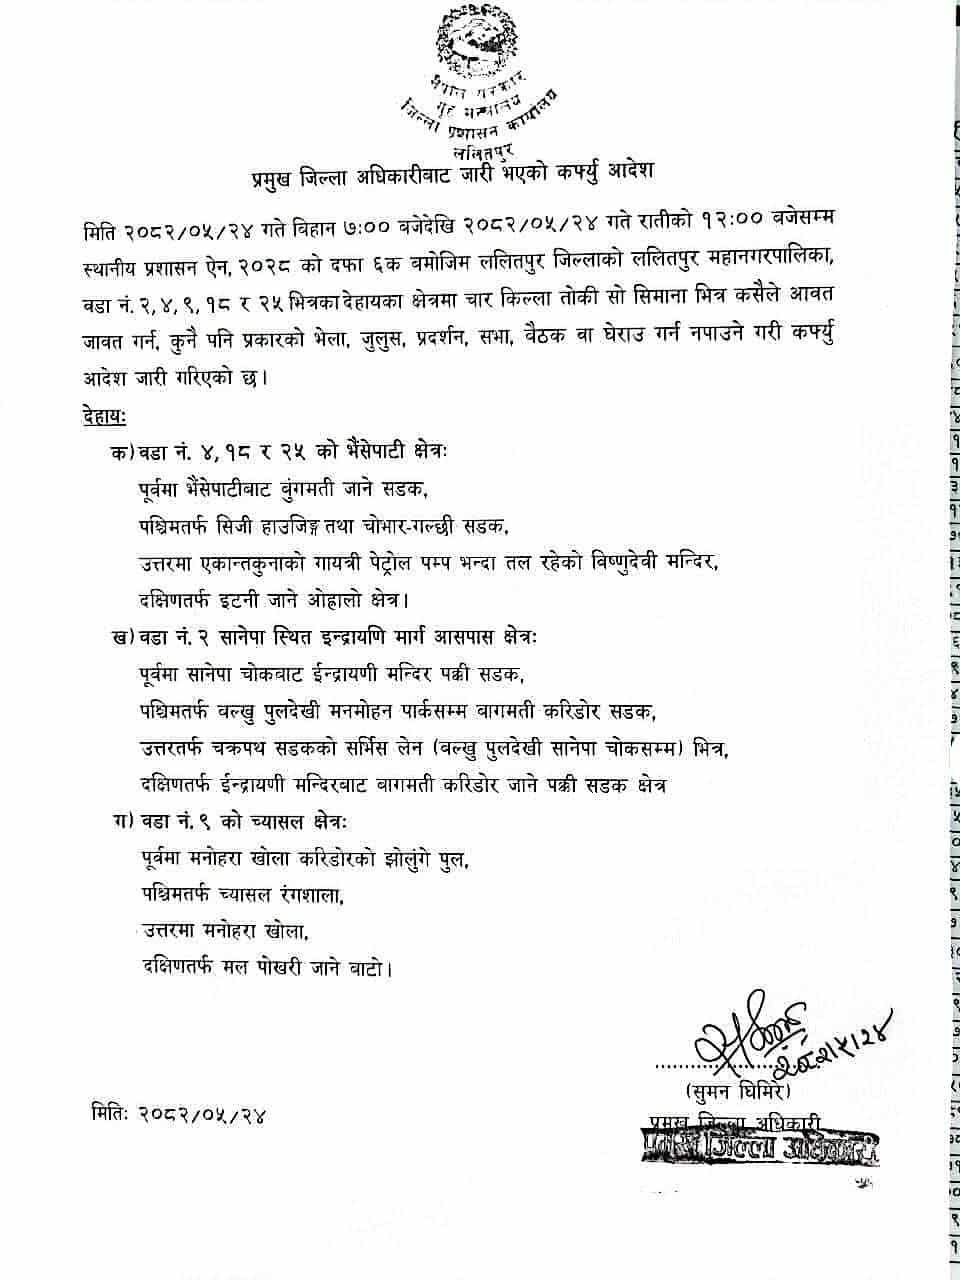 नेपाल सरकार
गृह मन्त्रालय
जिल्ला प्रशासन कार्यालय
ललितपुर
प्रमुख जिल्ला अधिकारीबाट जारी भएको कर्फ्यु आदेश
मिति २०८२/०५/२४ गते विहान ७:०० बजेदेखि २०८२/०५/२४ गते रातीको १२:०० बजेसम्म
स्थानीय प्रशासन ऐन, २०२८ को दफा ६क बमोजिम ललितपुर जिल्लाको ललितपुर महानगरपालिका,
वडा नं. २, ४, ९, १८ र २५ भित्रका देहायका क्षेत्रमा चार किल्ला तोकी सो सिमाना भित्र कसैले आवत
जावत गर्न, कुनै पनि प्रकारको भेला, जुलुस, प्रदर्शन, सभा, बैठक वा घेराउ गर्न नपाउने गरी कर्फ्यु
आदेश जारी गरिएको छ।
देहायः
क) वडा नं. ४, १८ र २५ को भैंसेपाटी क्षेत्रः
पूर्वमा भैंसेपाटीबाट बुंगमती जाने सडक,
पश्चिमतर्फ सिजी हाउजिङ्ग तथा चोभार-गल्छी सडक,
उत्तरमा एकान्तकुनाको गायत्री पेट्रोल पम्प भन्दा तल रहेको विष्णुदेवी मन्दिर,
दक्षिणतर्फ इटनी जाने ओह्रालो क्षेत्र।
ख) वडा नं. २ सानेपा स्थित इन्द्रायणि मार्ग आसपास क्षेत्रः
पूर्वमा सानेपा चोकबाट ईन्द्रायणी मन्दिर पक्की सडक,
पश्चिमतर्फ वल्खु पुलदेखी मनमोहन पार्कसम्म वागमती करिडोर सडक,
उत्तरतर्फ चक्रपथ सडकको सर्भिस लेन (वल्खु पुलदेखी सानेपा चोकसम्म) भित्र,
दक्षिणतर्फ ईन्द्रायणी मन्दिरबाट बागमती करिडोर जाने पक्की सडक क्षेत्र
ग) वडा नं. ९ को च्यासल क्षेत्रः
पूर्वमा मनोहरा खोला करिडोरको झोलुंगे पुल,
पश्चिमतर्फ च्यासल रंगशाला,
उत्तरमा मनोहरा खोला,
दक्षिणतर्फ मल पोखरी जाने बाटो।
२०८२।५।२४
(सुमन घिमिरे)
मितिः २०८२/०५/२४
प्रमुख जिल्ला अधिकारी
प्रमुख जिल्ला अधिकारी